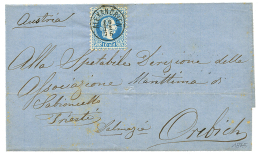 Austria
ALEXANDRIEN
Alla Spettabile Direzione della
Associazione Marittima di
Sabioncello
Trieste
Dalmazia Orebich